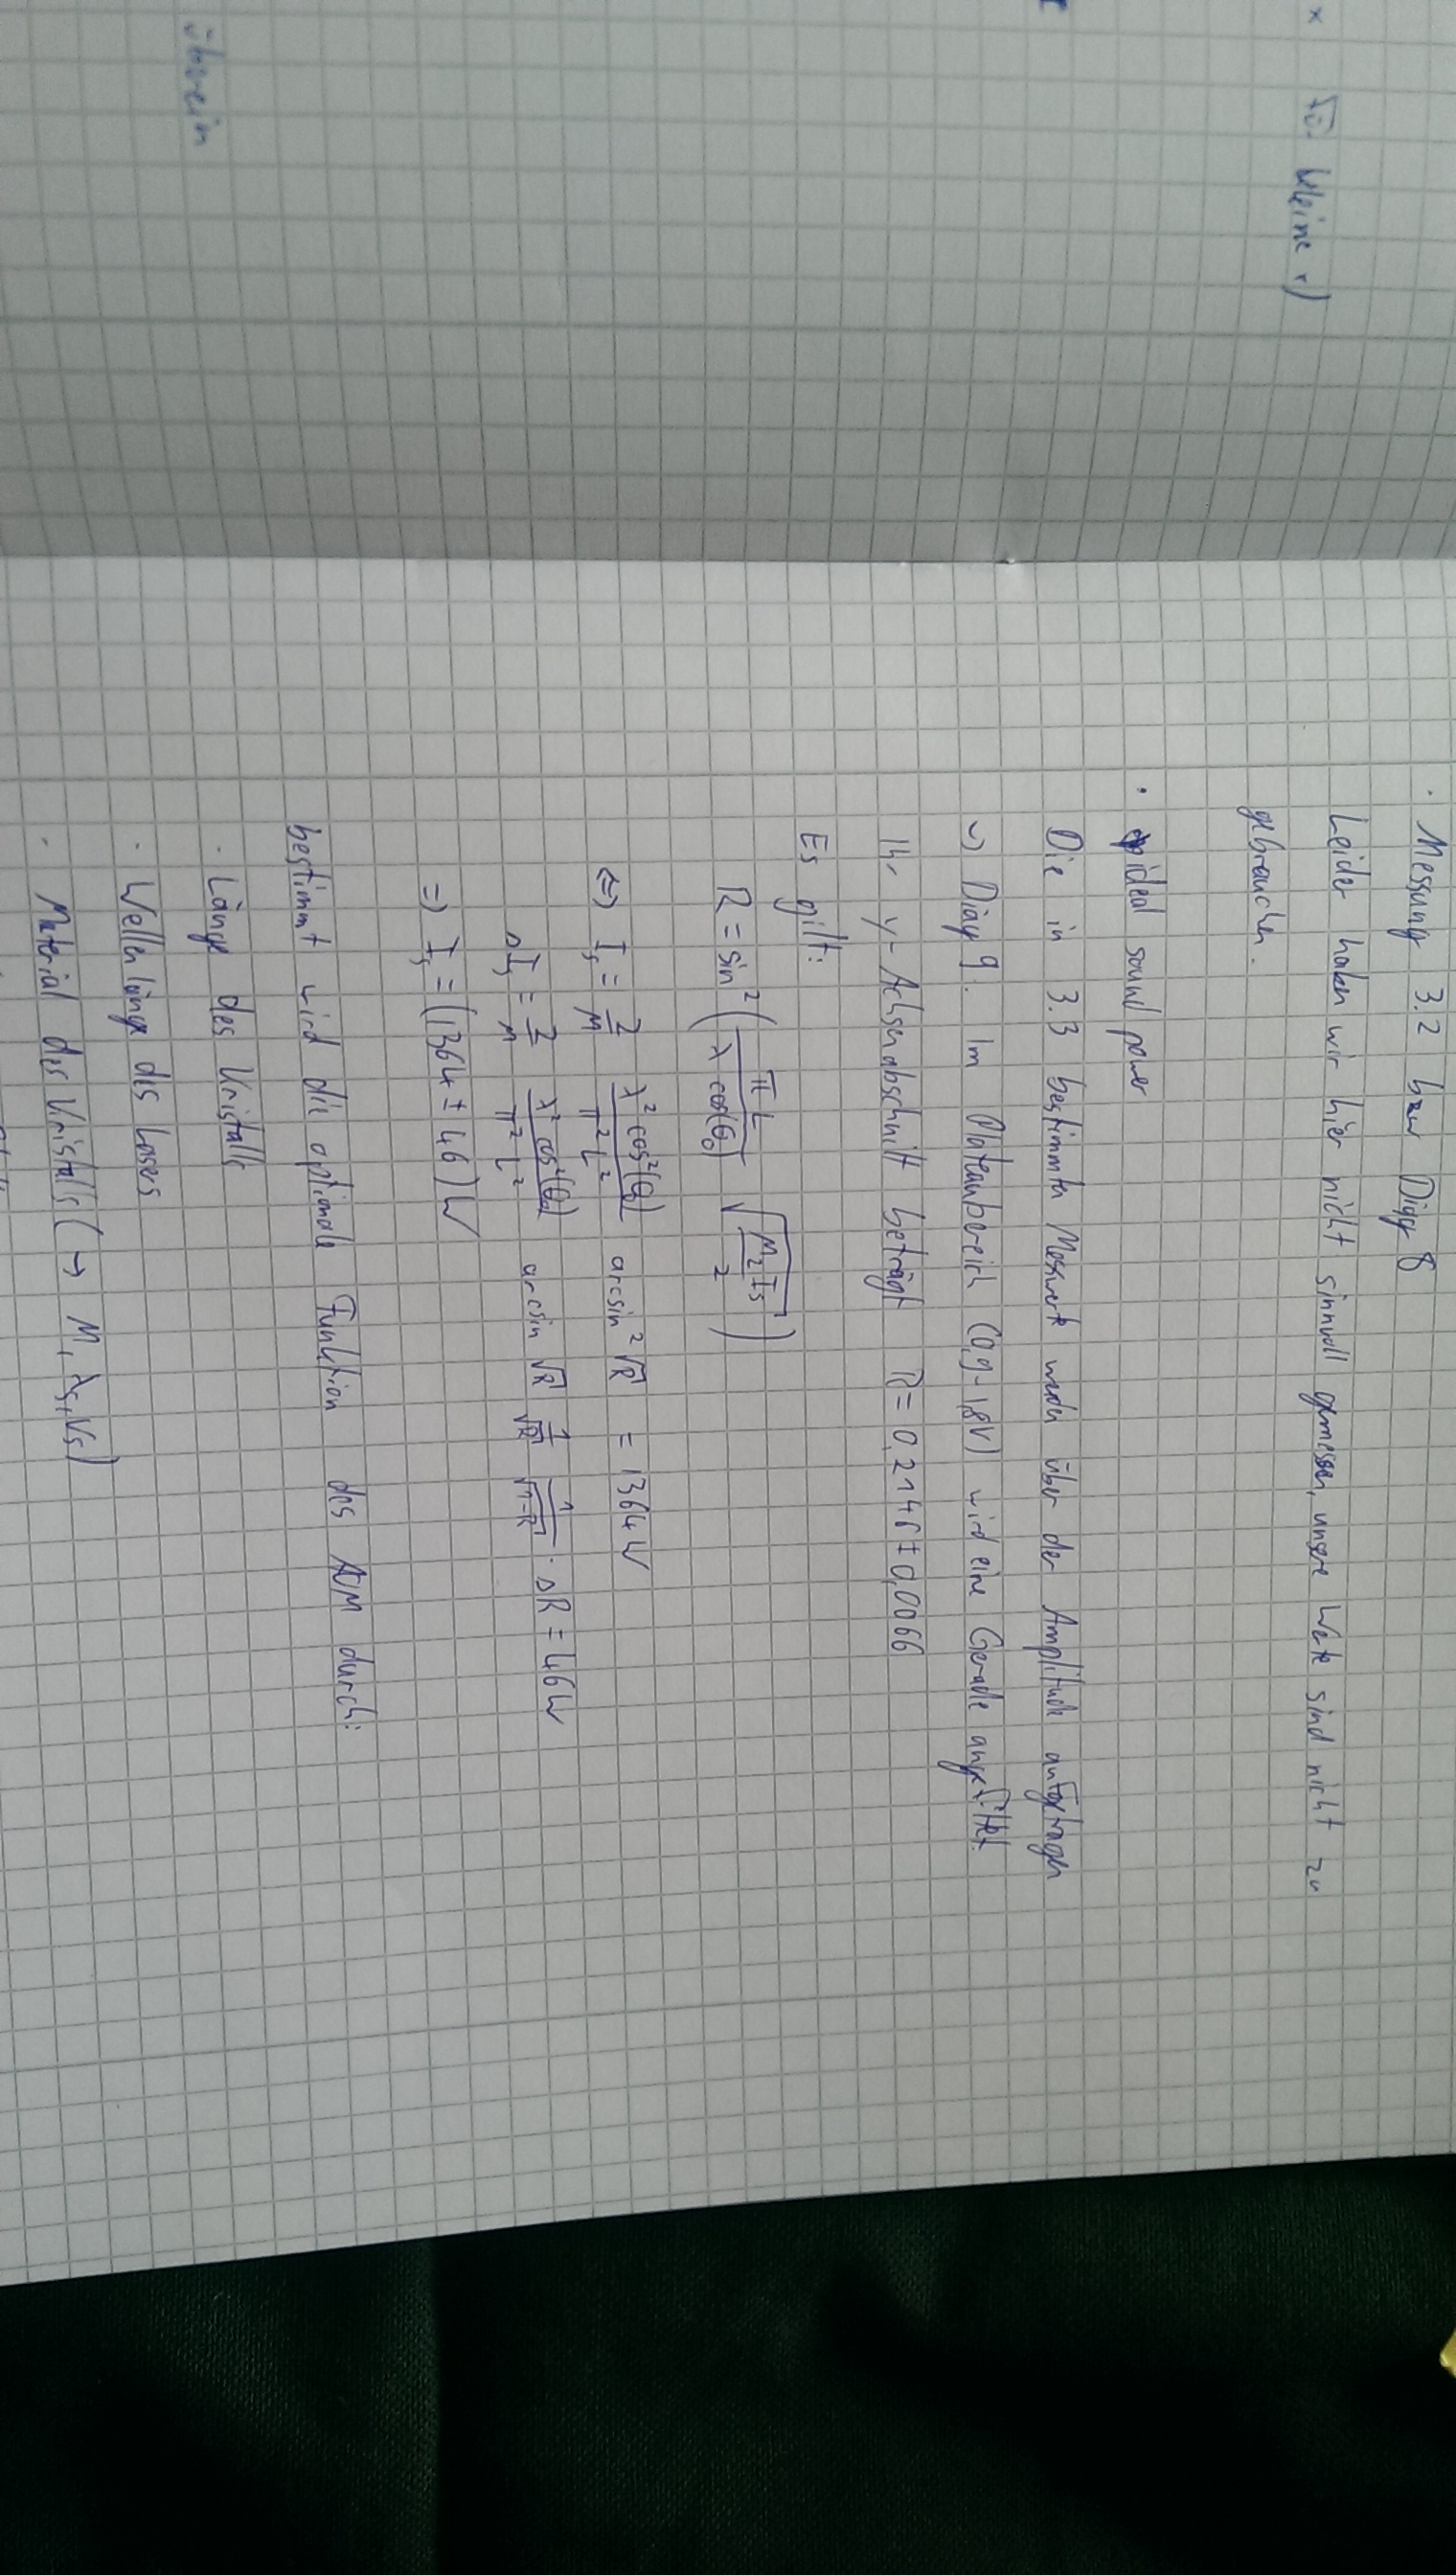 x
kleine r)
überein
· Messung 3.2 bzw Diag 8
Leider haben wir hier nicht sinnvoll gemessen, unsere Werte sind nicht zu
gebrauchen.
· ideal sound power
Die in 3.3 bestimmten Messwerte werden über der Amplitude aufgetragen
Diag 9. Im Plateaubereich (0,9-1,8V) wird eine Gerade angefittet.
Ihr y-Achsenabschnitt beträgt R = 0,2146 ± 0,0066
Es gilt:
R = sin² ( π L / (λ cos(θ₀)) √(M₂ I_s / 2) )
⇔ I_s = 2/M λ² cos²(θ₀) / (π² L²) arcsin² √R = 1364 W
ΔI_s = 2/M λ² cos²(θ₀) / (π² L²) arcsin √R 1/√R 1/√(1-R) · ΔR = 46 W
⇒ I_s = (1364 ± 46) W
bestimmt wird die optimale Funktion des AOM durch:
· Länge des Kristalls
· Wellenlänge des Lasers
· Material des Kristalls (→ M, λ_s, v_s)